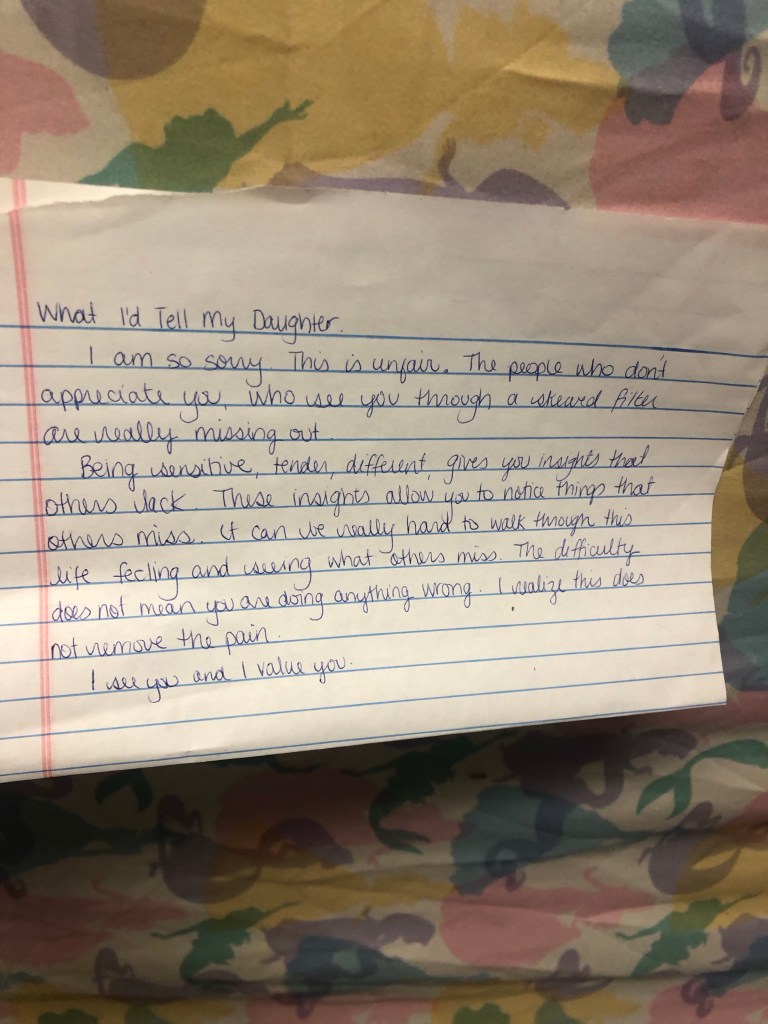 What I'd Tell My Daughter.
I am so sorry. This is unfair. The people who don't
appreciate you, who see you through a skeard filter
are really missing out.
Being sensitive, tender, different, gives you insights that
others lack. These insights allow you to notice things that
others miss. It can be really hard to walk through this
life feeling and seeing what others miss. The difficulty
does not mean you are doing anything wrong. I realize this does
not remove the pain.
I see you and I value you.